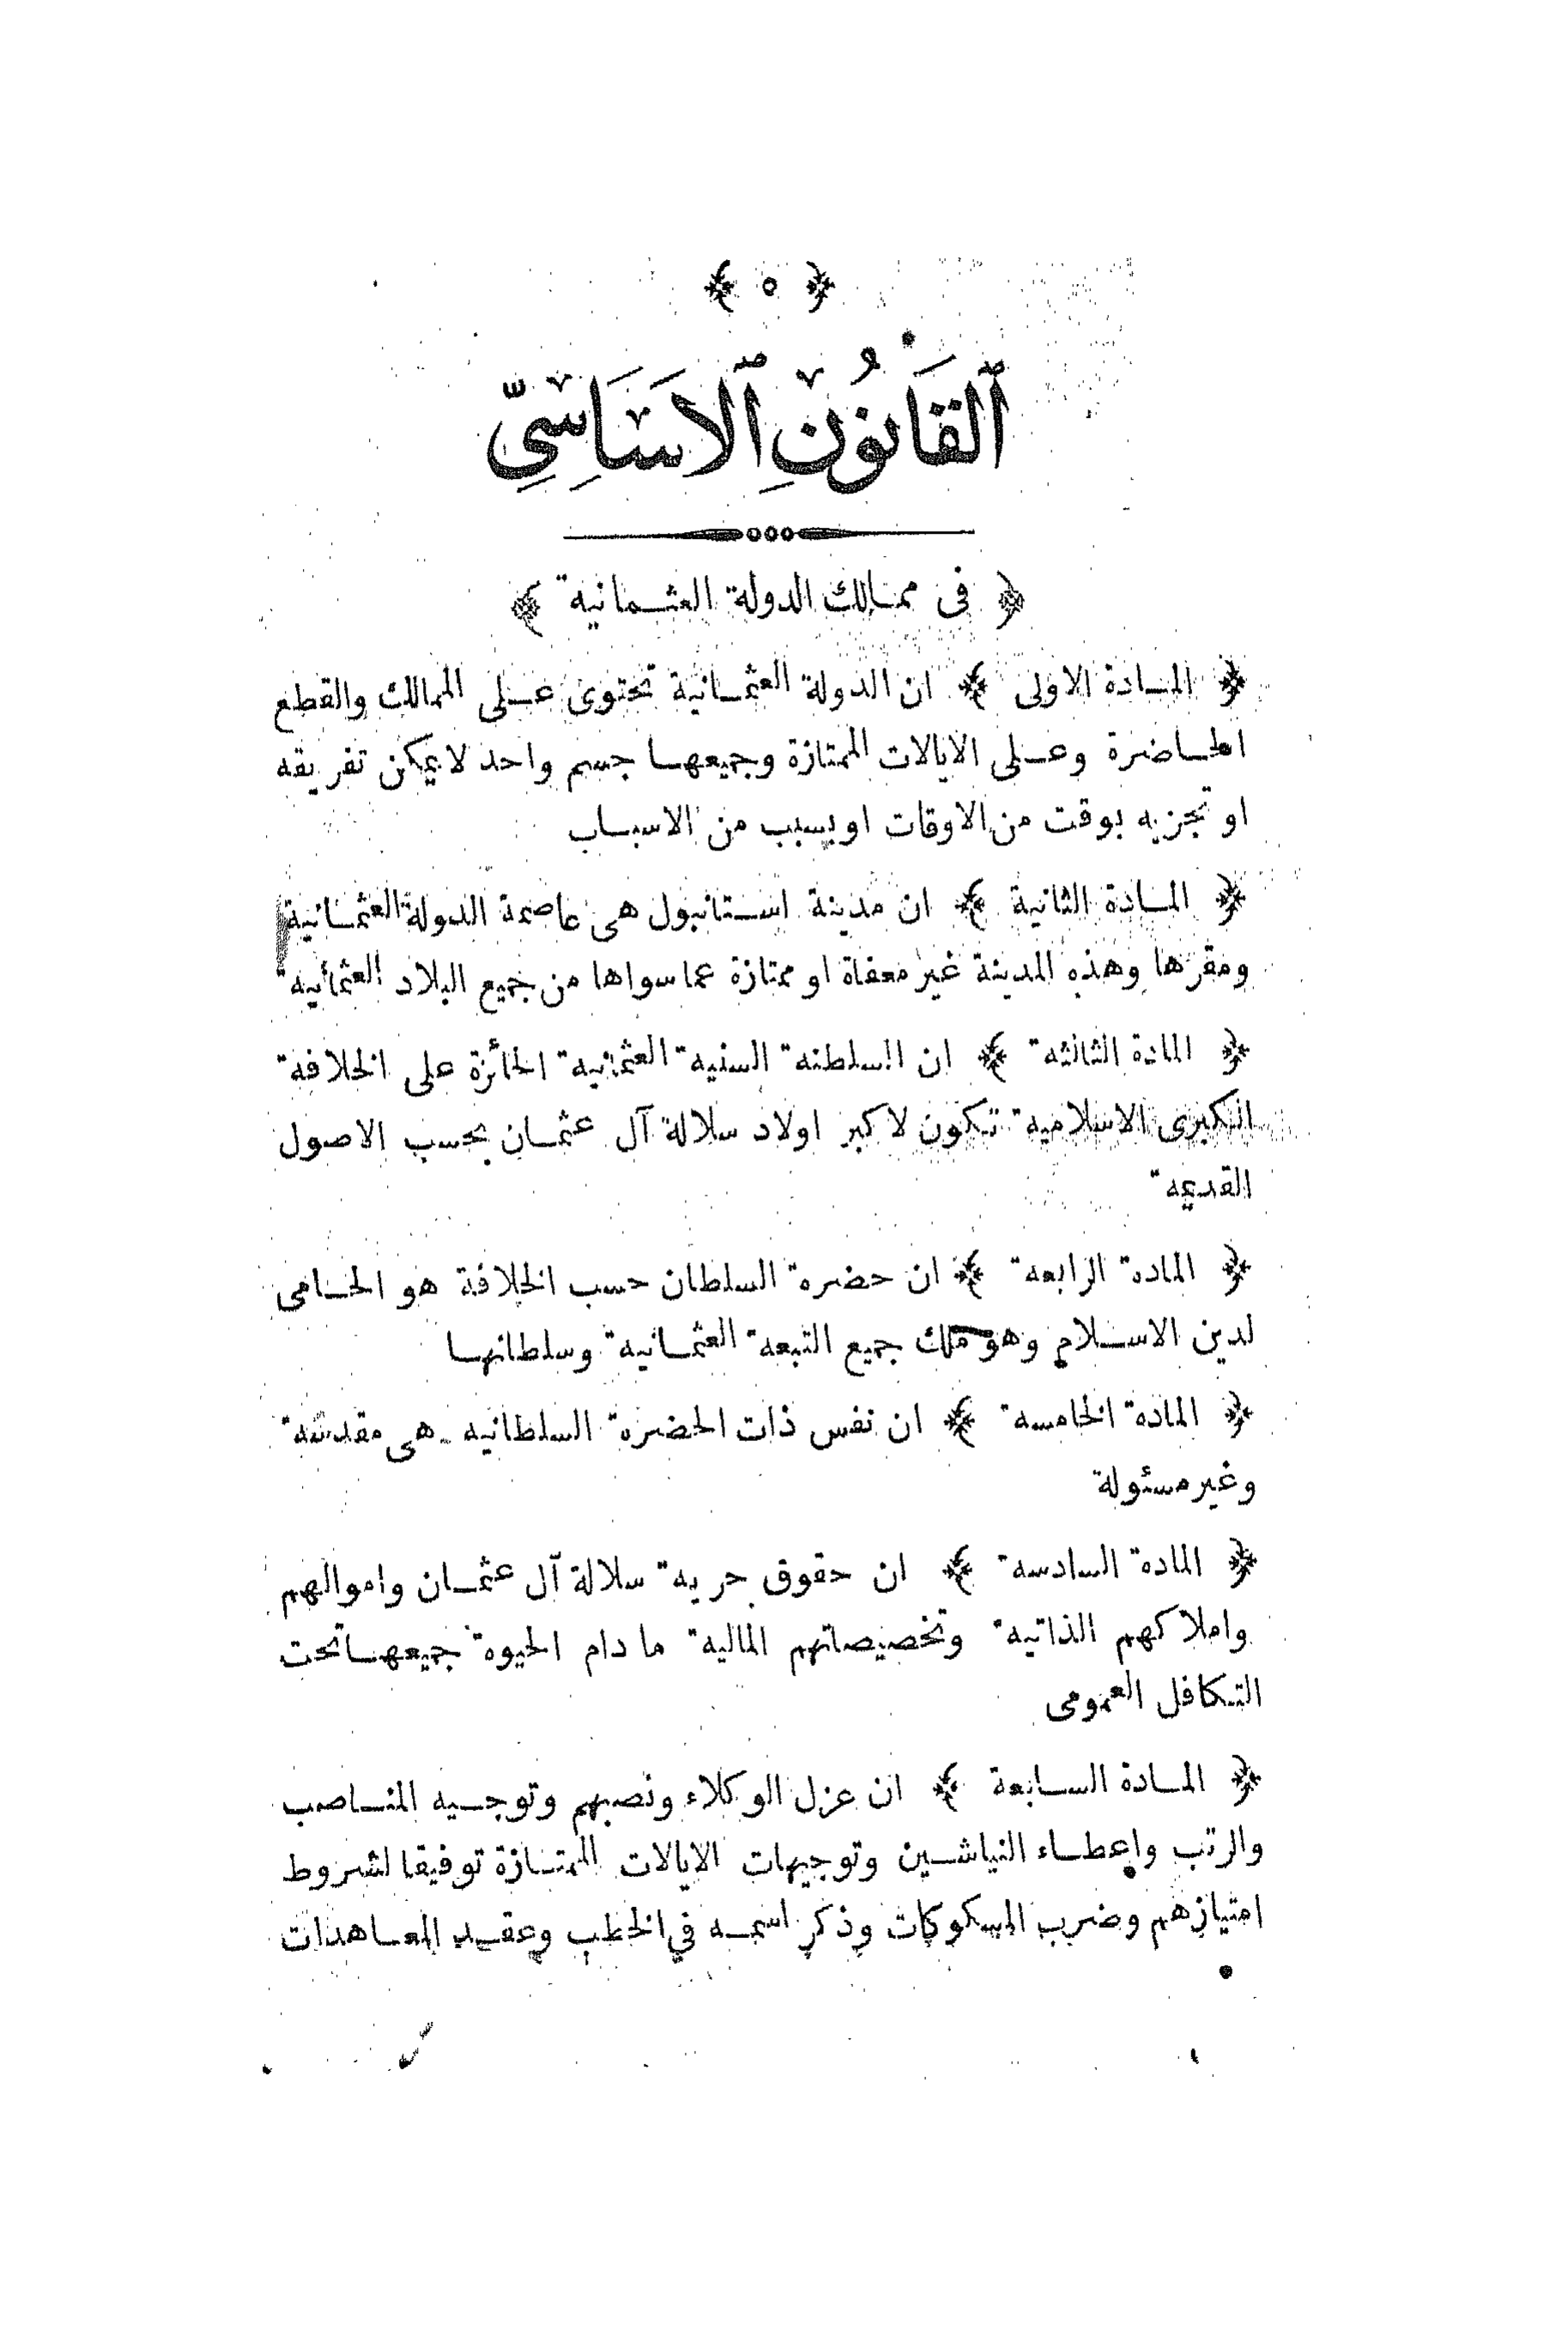 ﴿ ٥ ﴾
ٱلْقَانُونِ ٱلاَسَاسِىّ
﴿ فى ممالك الدولة العثمانية ﴾
﴿ المادة الاولى ﴾ ان الدولة العثمانية تحتوى على الممالك والقطع
الحاضرة وعلى الايالات الممتازة وجميعها جسم واحد لا يمكن تفريقه
او تجزيه بوقت من الاوقات او بسبب من الاسباب
﴿ المادة الثانية ﴾ ان مدينة استانبول هى عاصمة الدولة العثمانية
ومقرها وهذه المدينة غير معفاة او ممتازة عما سواها من جميع البلاد العثمانية
﴿ المادة الثالثة ﴾ ان السلطنة السنية العثمانية الحائزة على الخلافة
الكبرى الاسلامية تكون لاكبر اولاد سلالة آل عثمان بحسب الاصول
القديمة
﴿ المادة الرابعة ﴾ ان حضرة السلطان حسب الخلافة هو الحامى
لدين الاسلام وهو ملك جميع التبعة العثمانية وسلطانها
﴿ المادة الخامسة ﴾ ان نفس ذات الحضرة السلطانيه هى مقدسة
وغير مسئولة
﴿ المادة السادسة ﴾ ان حقوق حرية سلالة آل عثمان واموالهم
واملاكهم الذاتية وتخصيصاتهم المالية ما دام الحيوة جميعها تحت
التكافل العمومى
﴿ المادة السابعة ﴾ ان عزل الوكلاء ونصبهم وتوجيه المناصب
والرتب واعطاء النياشين وتوجيهات الايالات الممتازة توفيقا لشروط
امتيازهم وضرب المسكوكات وذكر اسمه في الخطب وعقد المعاهدات